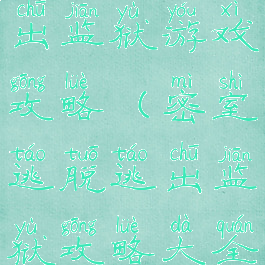 chū jiān yù yóu xì
出监狱游戏
gōng lüè mì shì
攻略（密室
táo tuō táo chū jiān
逃脱逃出监
yù gōng lüè dà quán
狱攻略大全